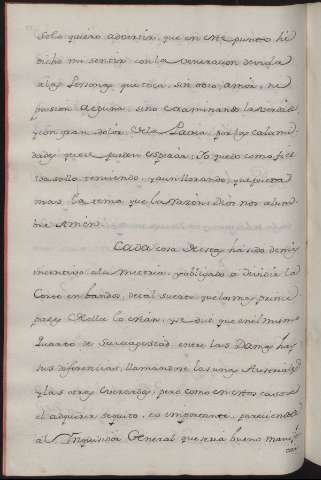 Solo quiero advertir, que en este punto he
dicho mi sentir con la veneracion devida
a las Personas que toca, sin odio, amor, ni
pasion alguna, sino examinando la verdad
y con gran dolor de la Patria, por las calami
dades que se pueden esperar; Yo quedo como fiel
vasallo temiendo, y aun llorando, que pueda
mas la tema que la razon; Dios nos alum
bre Amen.
Cada cosa de estas ha sido de
incentivo a la materia, y obligado a dividir la
Corte en bandos, de tal suerte que las mas princi
pales de ella lo están, y se dice, que en el mismo
Quarto de Su Magestad, entre las Damas hay
sus diferencias, llamandose las unas Austriacas
y las otras; pero como en estos casos
el adquirir sequito, es importante, pareciendole
al Inquisidor General que seria bueno mani